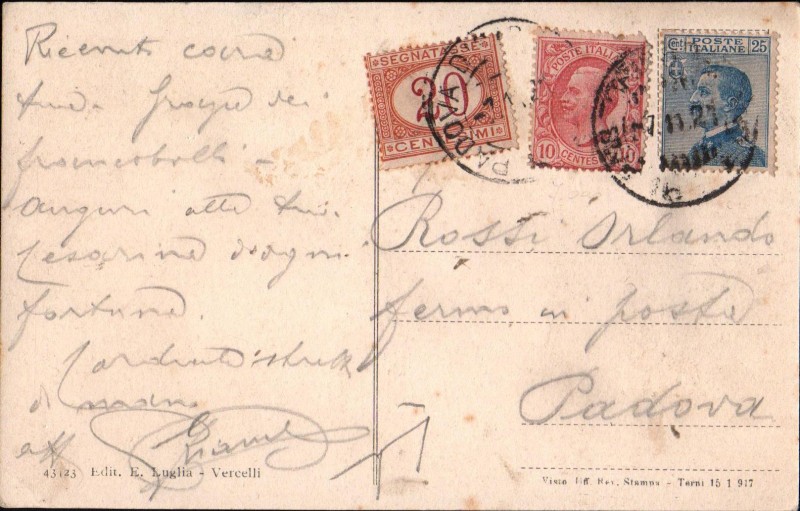 Ricevuto
tua. Grazie dei
francobolli -
auguri alla tua
Cesarina d'ogni
fortuna.
Cordiale stretta
di mano
aff
SEGNATASSE
20
CENTESIMI
PADOVA
POSTE ITALIANE
10 CENTESIMI 10
Cent POSTE ITALIANE 25
11.21
Rossi Orlando
fermo in posta
Padova
43123 Edit. E. Luglia - Vercelli
Visto Uff. Rev. Stampa - Terni 15 1 917